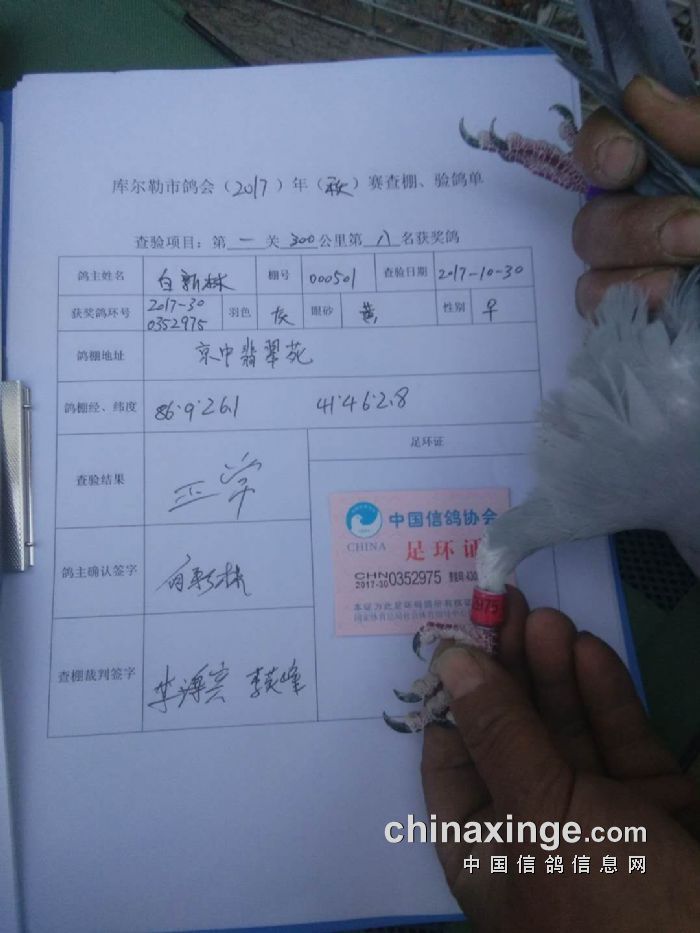 库尔勒市鸽会（2017）年（秋）赛查棚、验鸽单
查验项目：第一关300公里第八名获奖鸽
鸽主姓名 白新林 棚号 000501 查验日期 2017-10-30
获奖鸽环号 2017-30 0352975 羽色 灰 眼砂 黄 性别 ♀
鸽棚地址 京中翡翠苑
鸽棚经、纬度 86.9.26.1 41.46.2.8
足环证
查验结果 正常
中国信鸽协会
CHINA 足环证
CHN 2017-30 0352975
本证为此足环鸽所有权证
975
鸽主确认签字 白新林
查棚裁判签字 李英峰
chinaxinge.com
中国信鸽信息网